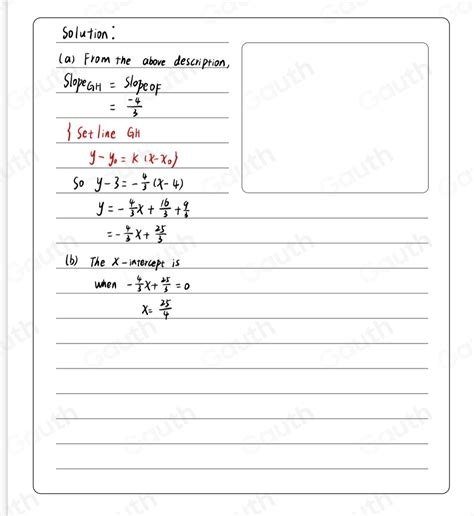 Solution:
(a) From the above description,
Slope GH = Slope OF
= -4/3
{ Set line GH
y - y₀ = k (x - x₀) }
So y - 3 = - 4/3 (x - 4)
y = - 4/3 x + 16/3 + 9/3
= - 4/3 x + 25/3
(b) The x-intercept is
when - 4/3 x + 25/3 = 0
x = 25/4
Gauth